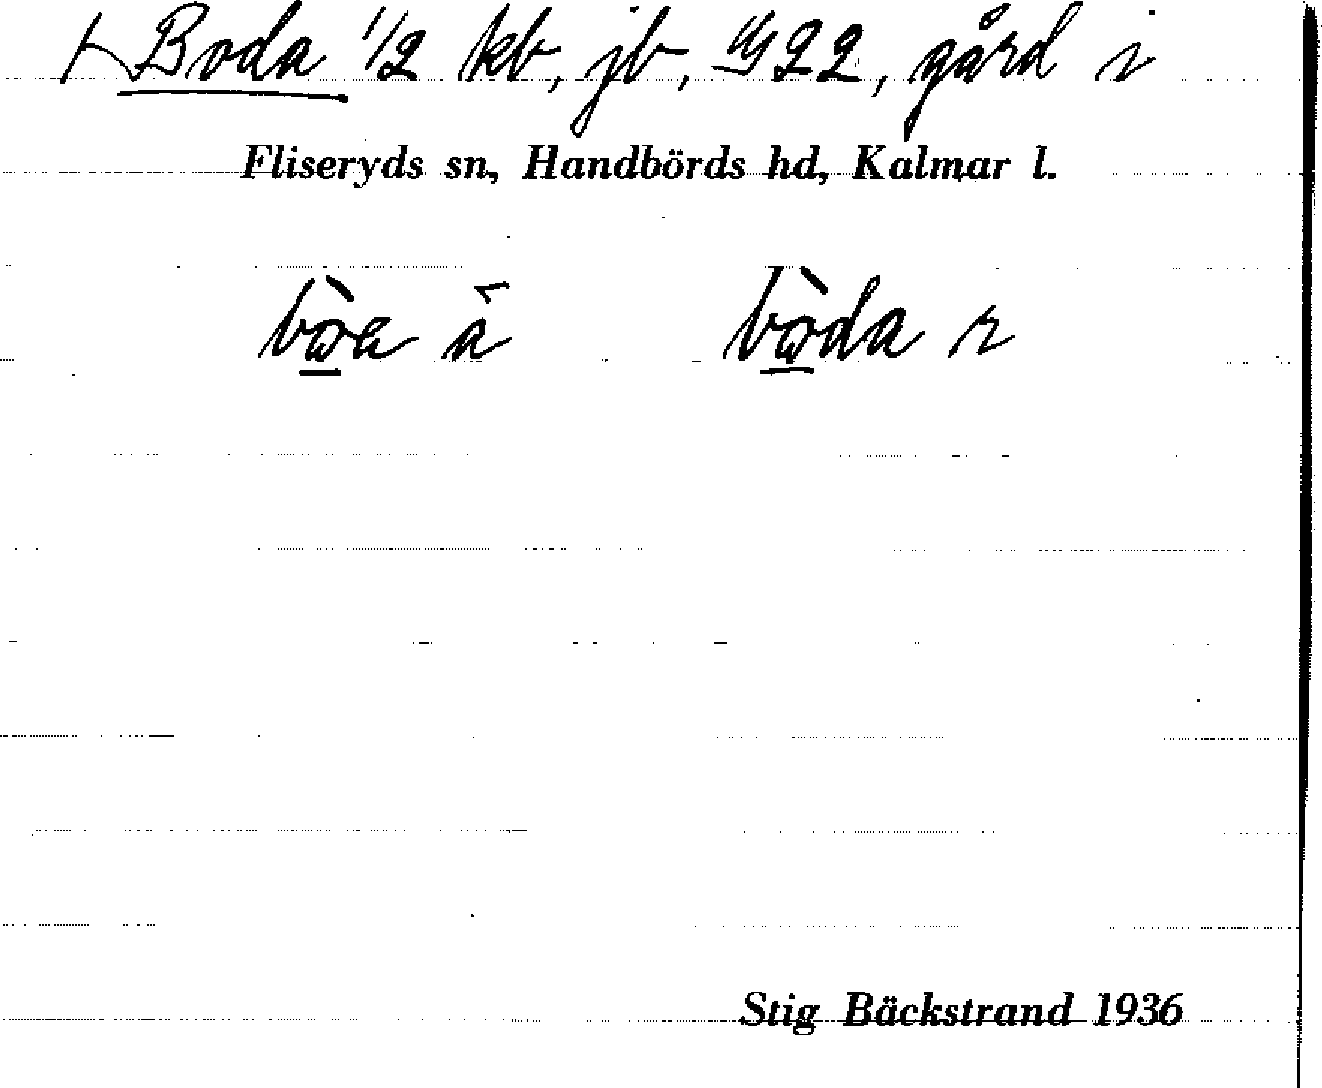 Boda 1/2 kb, jb, 22, gård i
Fliseryds sn, Handbörds hd, Kalmar l.
bò̱a ä bò̱da r
Stig Bäckstrand 1936